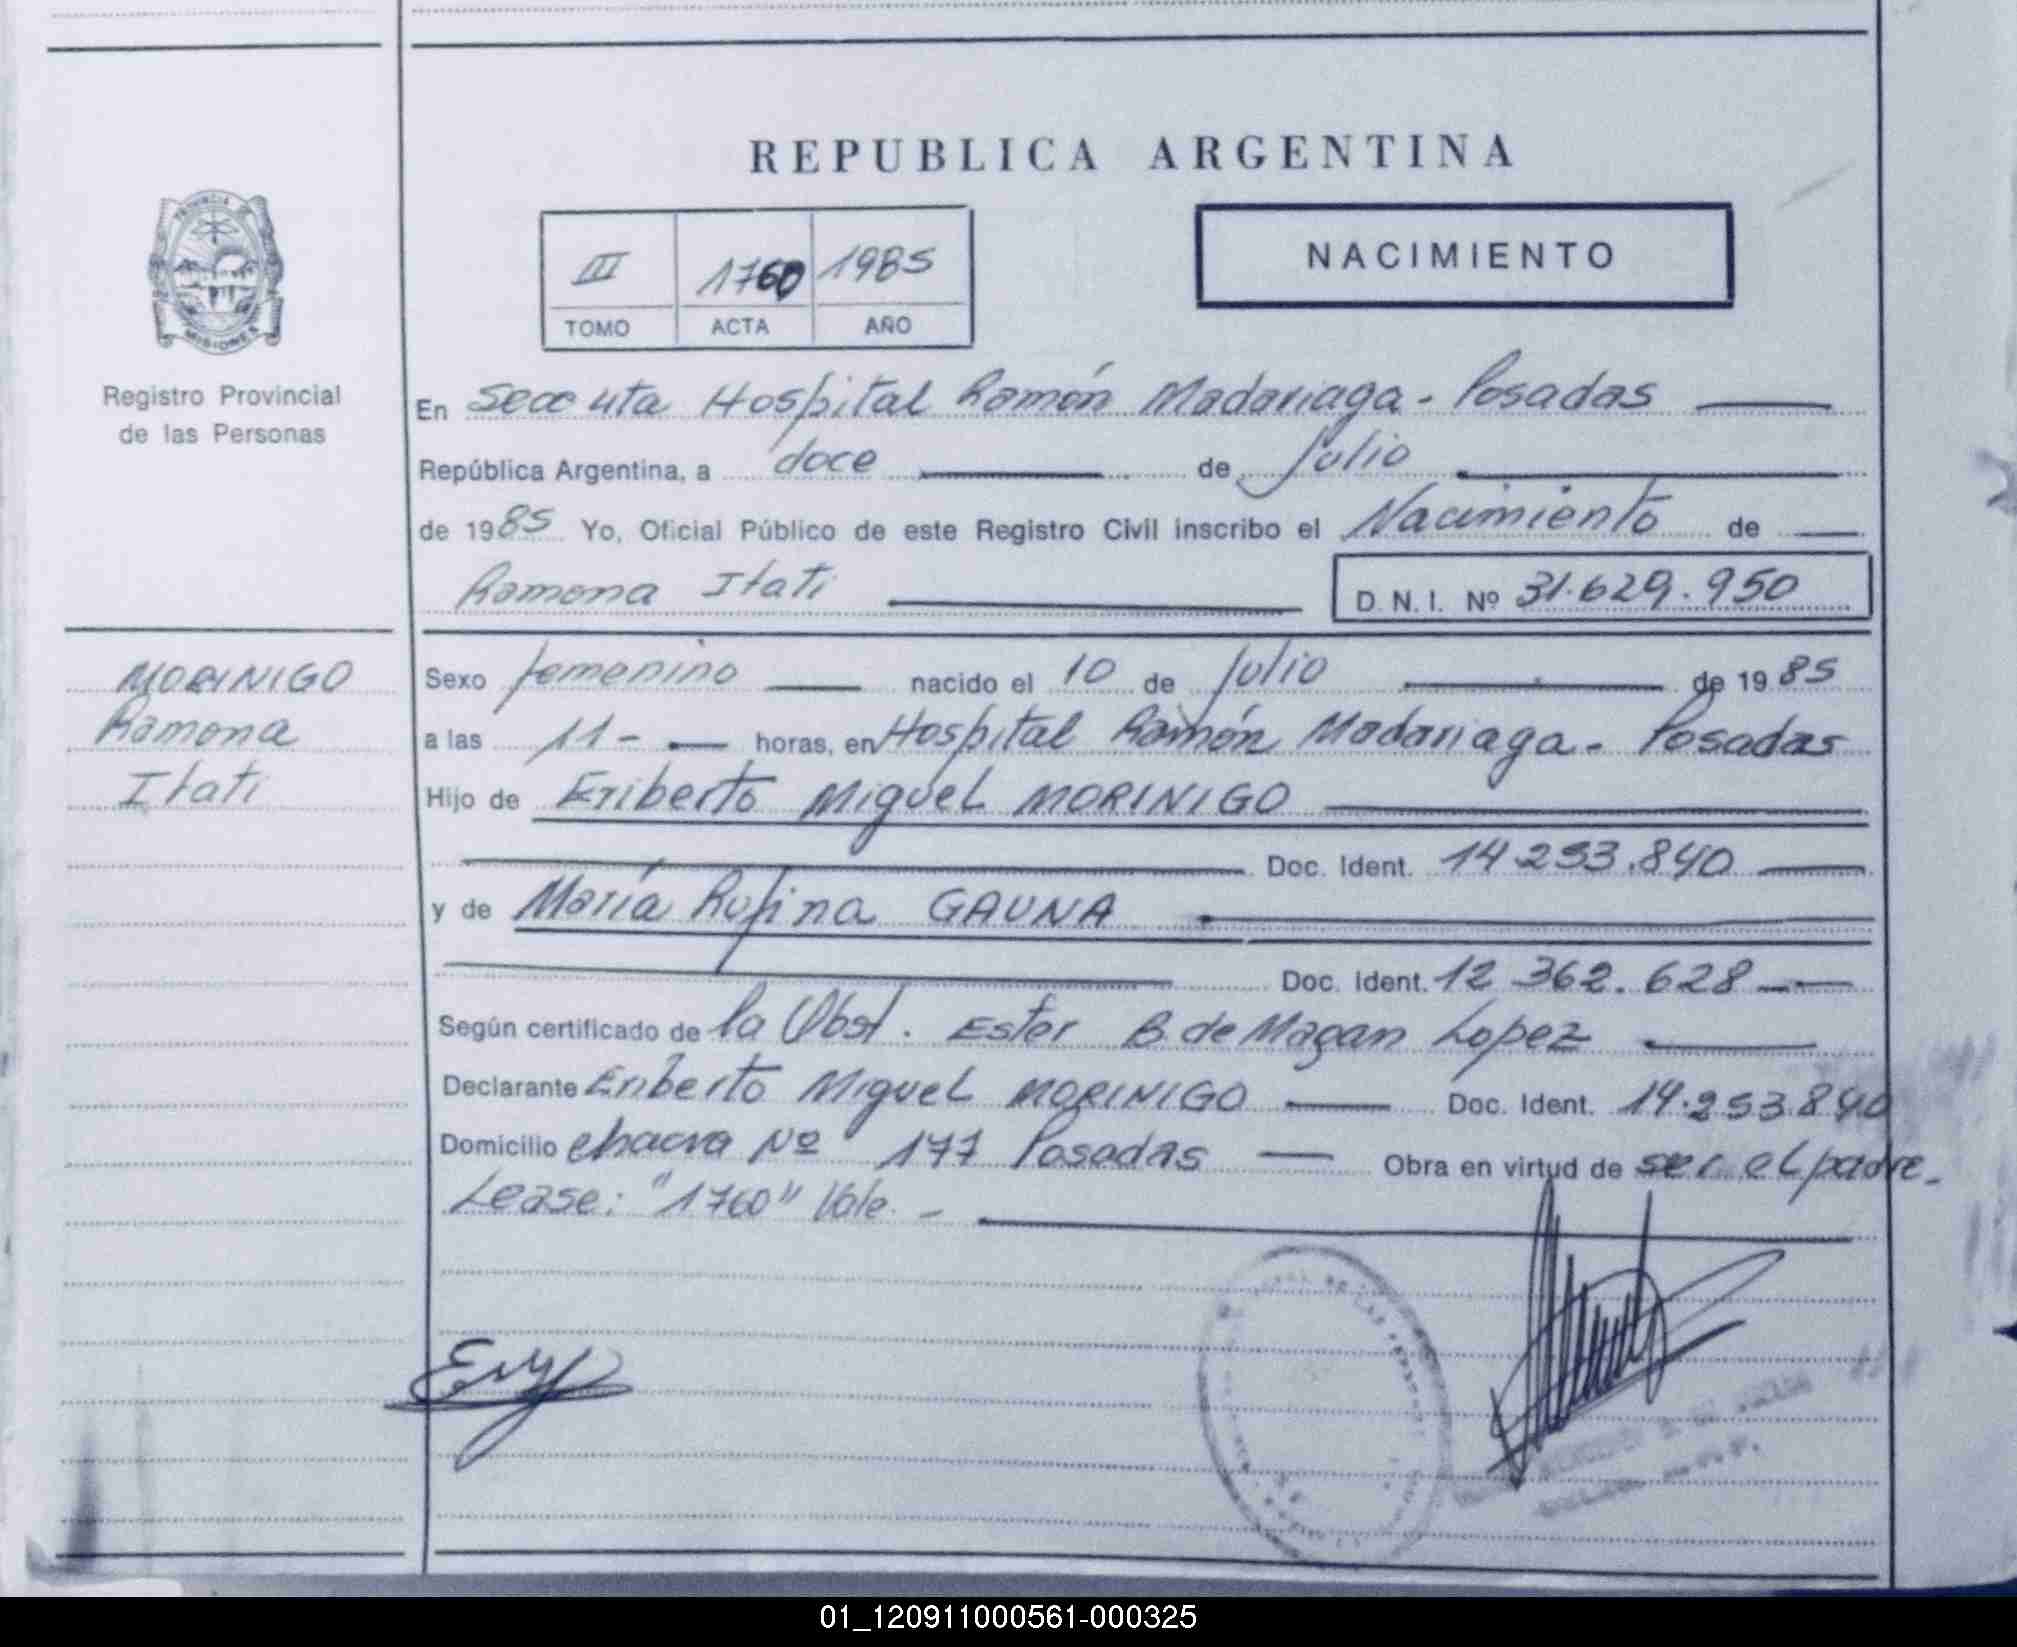 REPUBLICA ARGENTINA
PROVINCIA DE
MISIONES
Registro Provincial
de las Personas
III 1760 1985
TOMO ACTA AÑO
NACIMIENTO
En Secc 4ta Hospital Ramón Madariaga - Posadas
República Argentina, a doce de Julio
de 1985 Yo, Oficial Público de este Registro Civil inscribo el Nacimiento de
Ramona Itati D.N.I. Nº 31.629.950
MORINIGO
Ramona
Itati
Sexo femenino nacido el 10 de Julio de 1985
a las 11- horas, en Hospital Ramón Madariaga - Posadas
Hijo de Eriberto Miguel MORINIGO
Doc. Ident. 14.253.840
y de María Rufina GAUNA
Doc. Ident. 12.362.628
Según certificado de la Obst. Ester B. de Magan Lopez
Declarante Eriberto Miguel MORINIGO Doc. Ident. 14.253.840
Domicilio chacra Nº 177 Posadas Obra en virtud de ser el padre.
Lease: "1760" Vale -
01_120911000561-000325